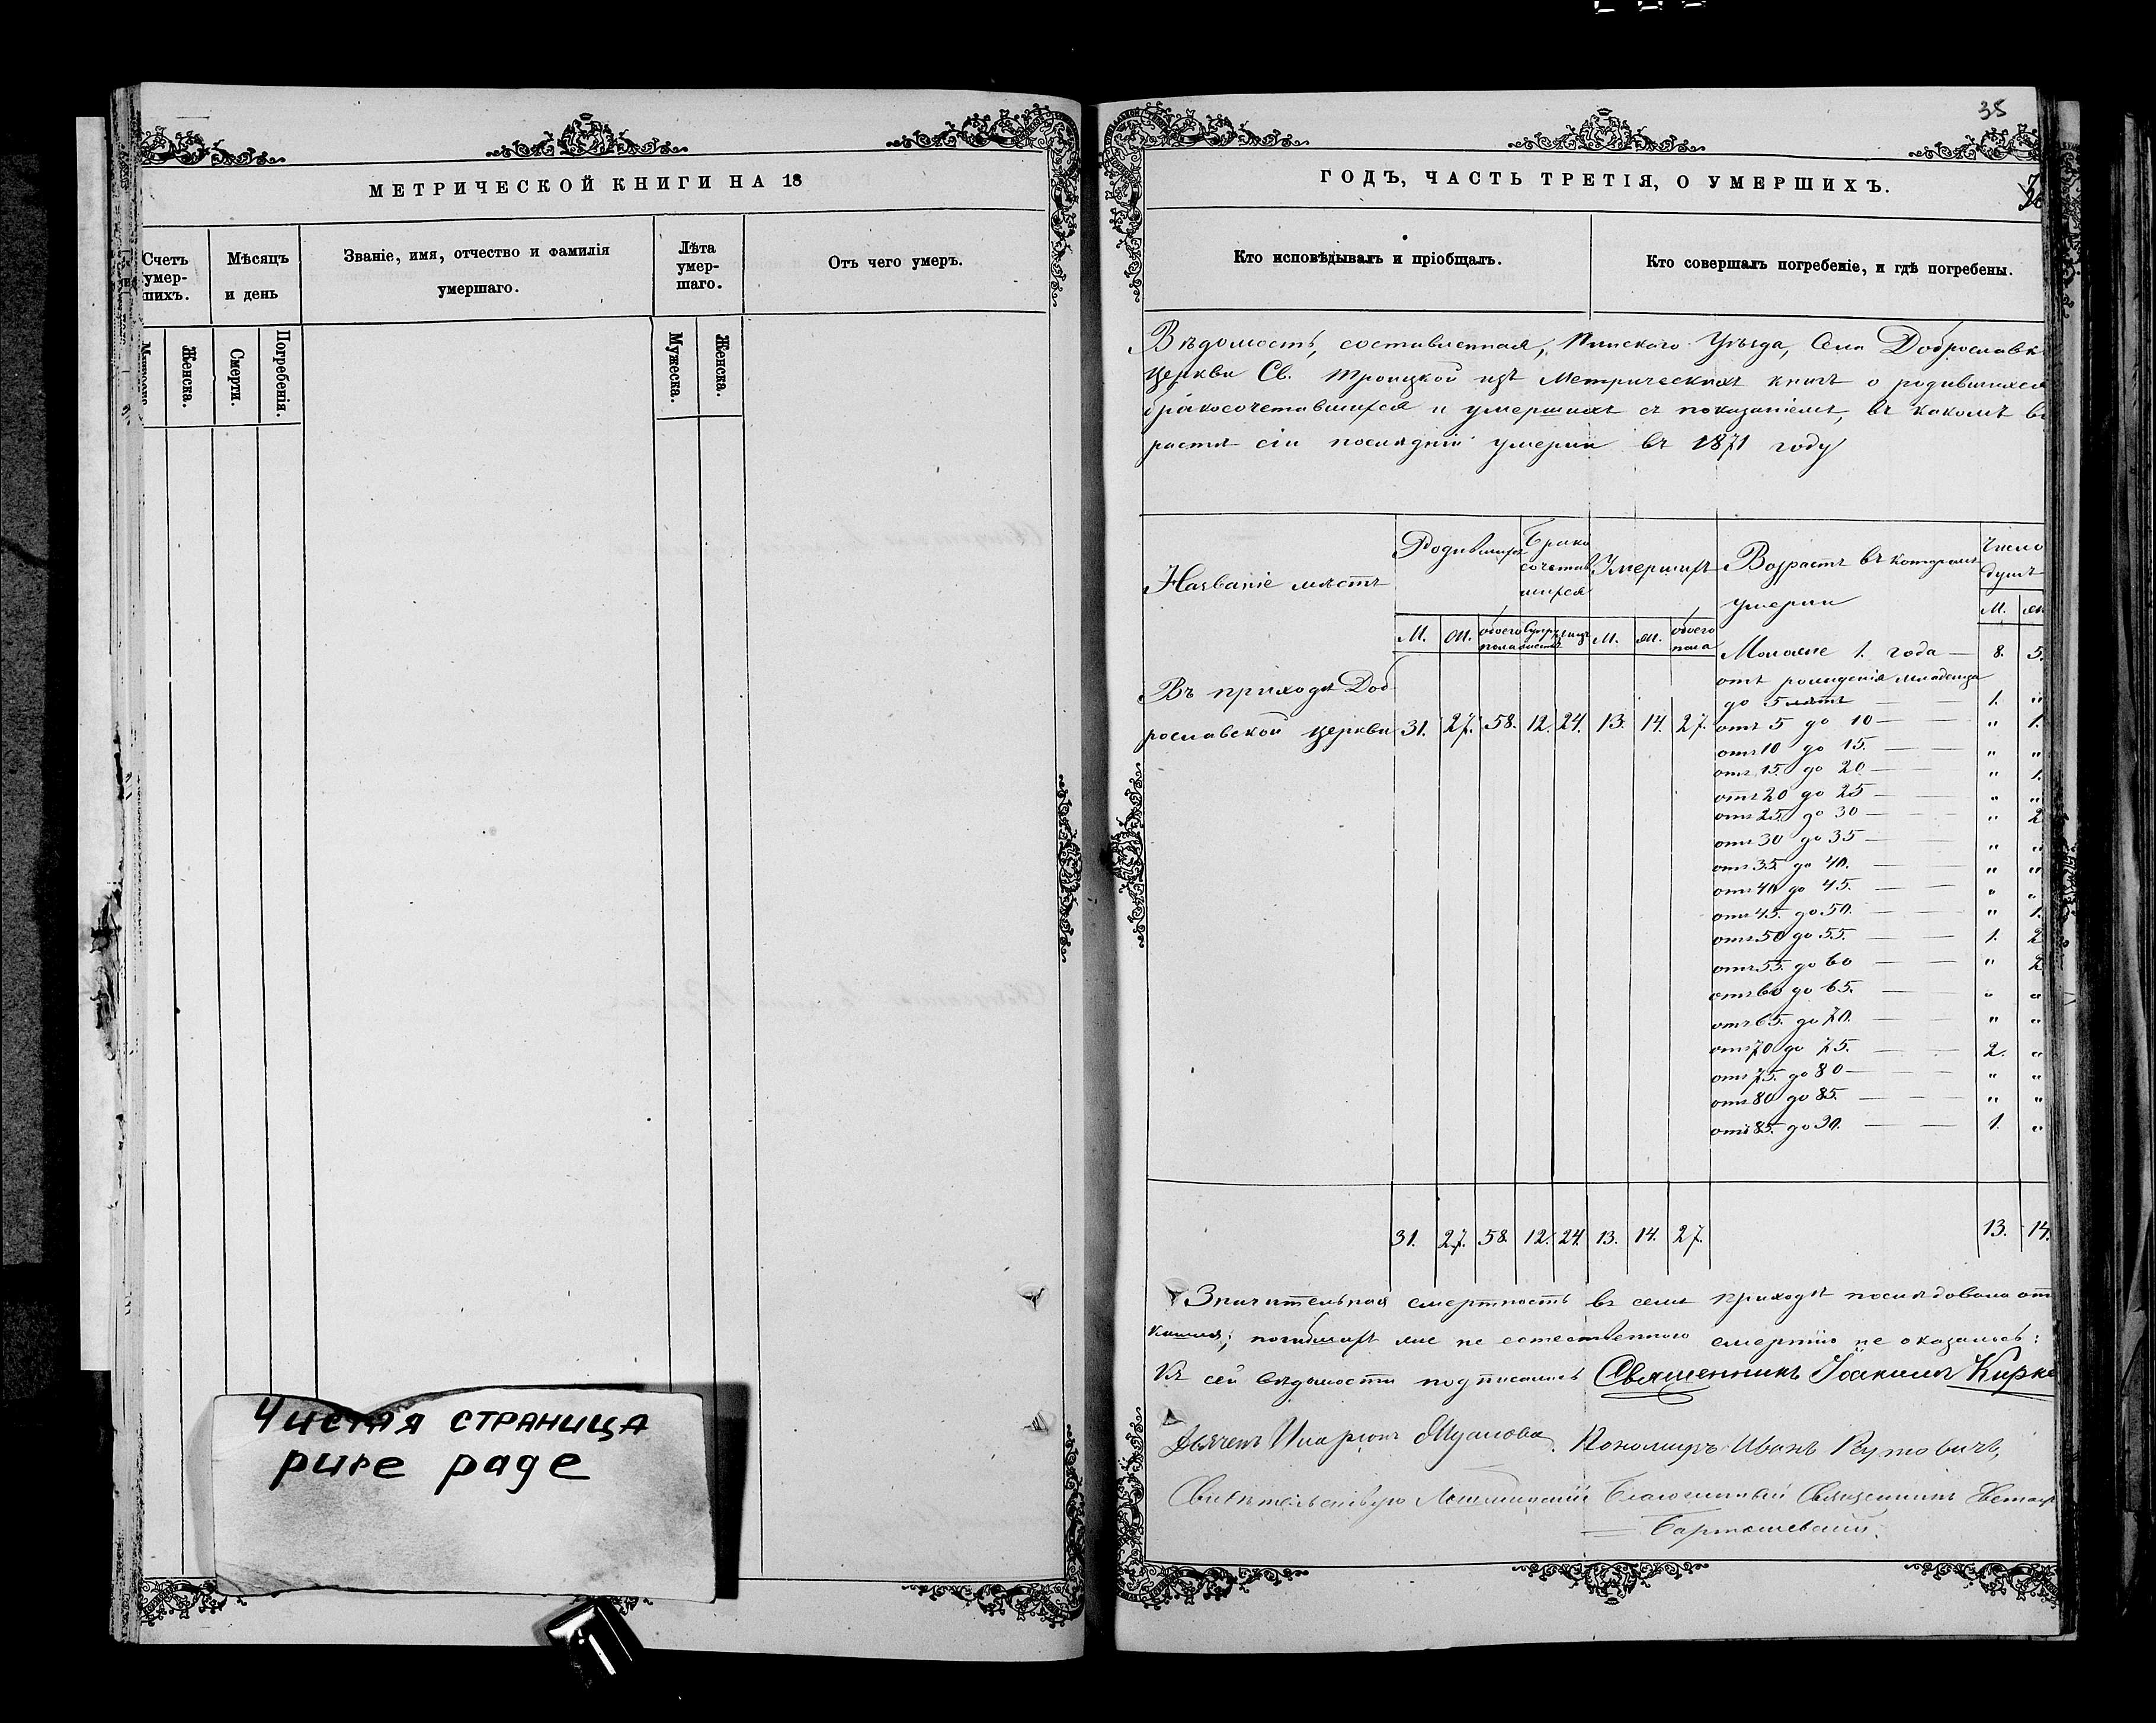 МЕТРИЧЕСКОЙ КНИГИ НА 18
Счетъ умер-шихъ.
Мѣсяцъ и день
Званіе, имя, отчество и фамилія умершаго.
Лѣта умер-шаго.
Отъ чего умеръ.
Женска.
Смерти.
Погребенія.
Мужеска.
Женска.
Чистая страница
pure page
35
ГОДЪ, ЧАСТЬ ТРЕТІЯ, О УМЕРШИХЪ.
Кто исповѣдывалъ и пріобщалъ.
Кто совершалъ погребеніе, и гдѣ погребены.
Вѣдомость, составленная, Пинскаго Уѣзда, Села Доброславки
церкви Св. Троицкой изъ Метрическихъ книгъ о родившихся
бракосочетавшихся и умершихъ съ показаніемъ, въ какомъ воз
растѣ сіи послѣдніи умерли въ 1871 году
Названіе мѣстъ
Родившихся
Брако сочетав шихся
Умершихъ
Возрастъ въ которомъ умерли
Число душъ
М. Ж. обоего пола
М. Ж. обоего пола
М. Ж.
Въ приходѣ Доб
рославской церкви 31. 27. 58. 12. 24. 13. 14. 27.
Моложе 1. года — 8. 5.
отъ рожденія младенца
до 5 лѣтъ — — 1. "
отъ 5 до 10 — — " 1.
отъ 10 до 15. — — " "
отъ 15. до 20 — — " 1.
отъ 20 до 25 — — " "
отъ 25. до 30 — — " 2
отъ 30 до 35 — — " "
отъ 35 до 40. — — " "
отъ 40 до 45. — — " "
отъ 45. до 50. — — " 1.
отъ 50 до 55. — — 1. 2
отъ 55. до 60 — — " 2
отъ 60 до 65. — — " "
отъ 65. до 70. — — " "
отъ 70 до 75. — — 2. "
отъ 75. до 80 — — " "
отъ 80 до 85. — — " "
отъ 85. до 90. — — 1. "
31. 27. 58. 12. 24. 13. 14. 27. 13. 14.
Значительная смертность въ семъ приходѣ послѣдовала отъ
кашля; погибшихъ же не естественною смертію не оказалось:
Къ сей вѣдомости подписались Священникъ Іоакимъ Кирке
Дьячекъ Иларіонъ Пономарь Иванъ Рутовичъ,
Свидѣтельствую Благочинный Священникъ